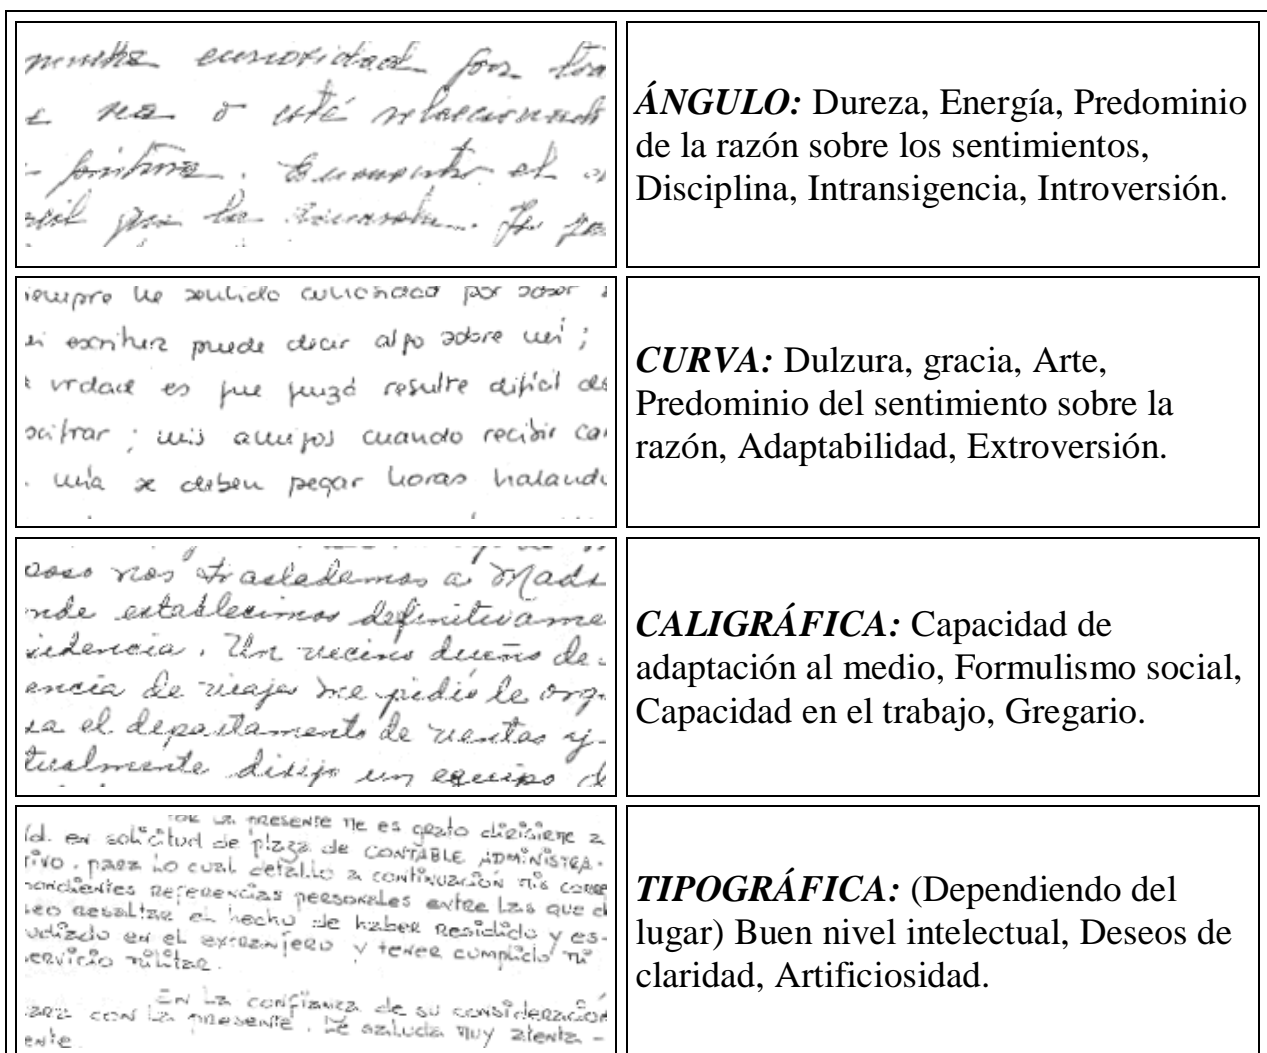 curiosidad por
no o esté relacionado
el
por la
ÁNGULO: Dureza, Energía, Predominio
de la razón sobre los sentimientos,
Disciplina, Intransigencia, Introversión.
he sentido curiosidad por saber
escritura puede decir algo sobre mí ;
es que quizá resulte difícil
; mis amigos cuando recibir
mía se deben pegar horas
CURVA: Dulzura, gracia, Arte,
Predominio del sentimiento sobre la
razón, Adaptabilidad, Extroversión.
nos trasladamos a Mads
nde establecimos definitivame
sidencia. Un vecino dueño de
encia de viajes me pidió le org
sa el departamento de ventas y
tualmente dirijo un equipo d
CALIGRÁFICA: Capacidad de
adaptación al medio, Formulismo social,
Capacidad en el trabajo, Gregario.
LA PRESENTE ME es grato dirigirme a
Vd. en solicitud de plaza de CONTABLE ADMINISTRA-
tivo, para lo cual detallo a continuación mis corre
pondientes referencias personales entre las que d
seo resaltar el hecho de haber residido y es-
tudiado en el extranjero y tener cumplido mi
servicio militar.
En la confianza de su consideración
para con la presente. Le saluda muy atenta-
ente.
TIPOGRÁFICA: (Dependiendo del
lugar) Buen nivel intelectual, Deseos de
claridad, Artificiosidad.